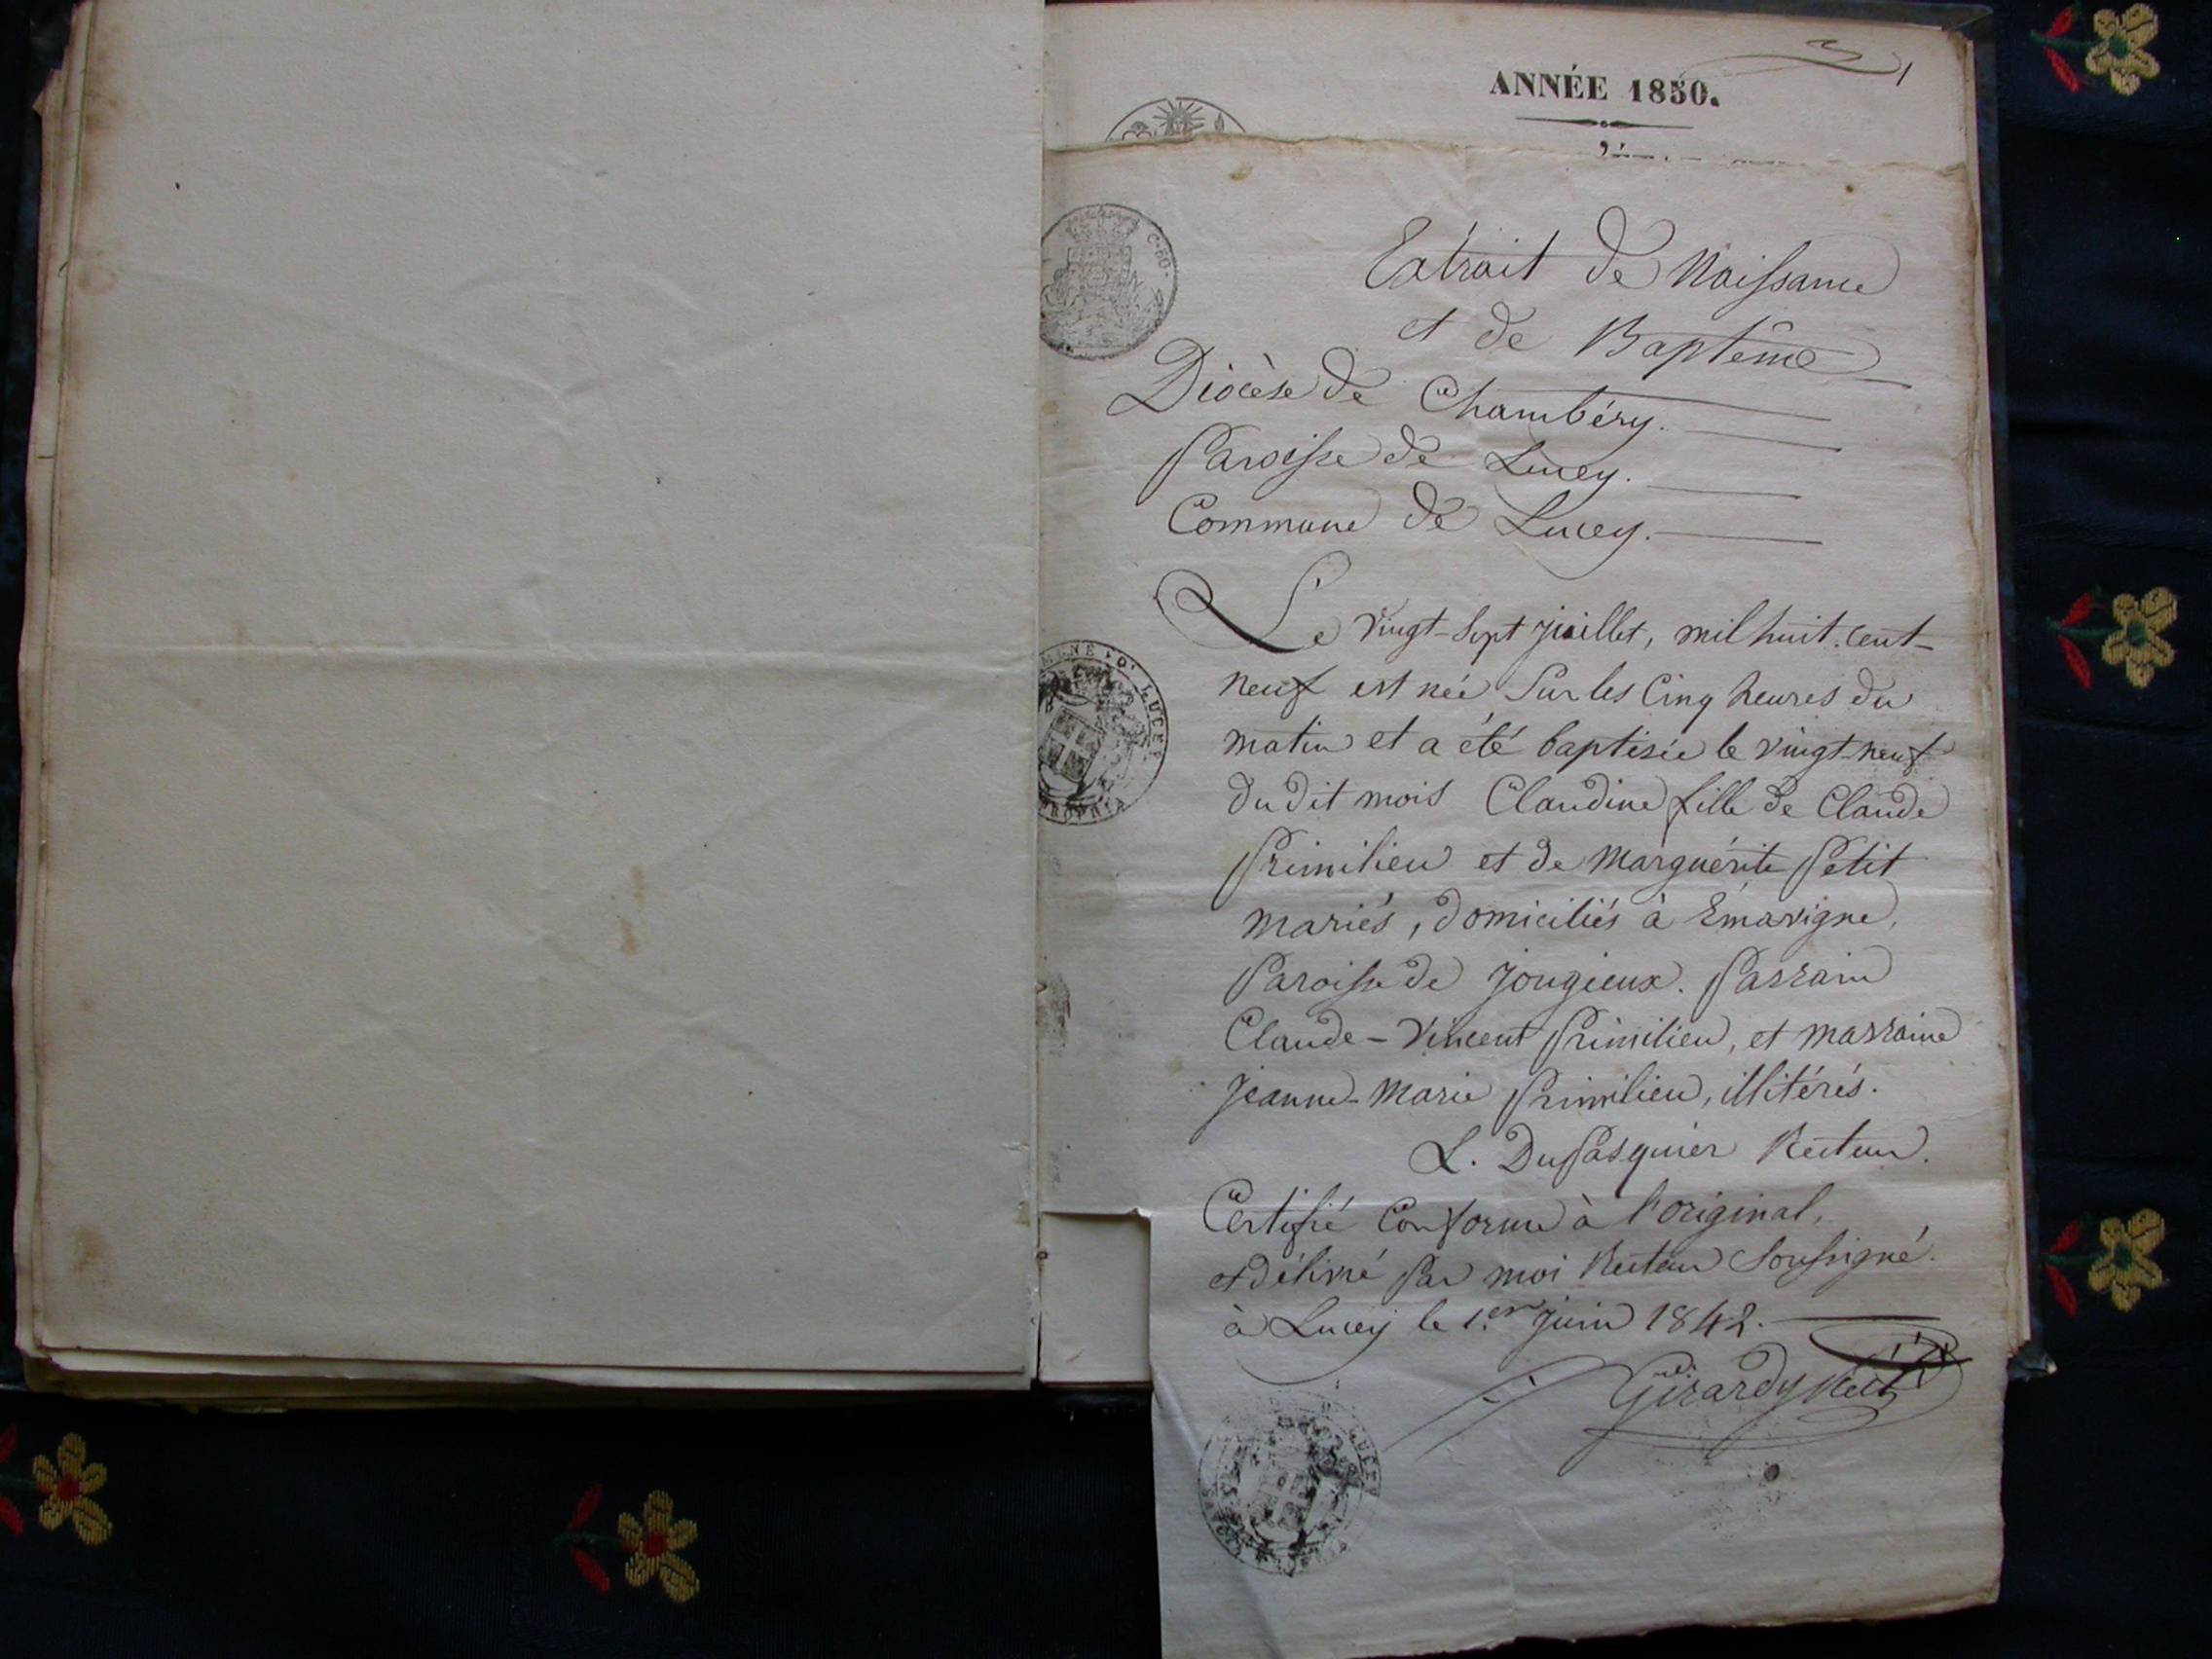 1
ANNÉE 1850.
Extrait de Naissance
et de Baptême
C. 80.
Diocèse de Chambéry.
Paroisse de Lucey.
Commune de Lucey.
Le vingt-sept juillet, mil huit. cent-
neuf est née sur les cinq heures du
matin et a été baptisée le vingt-neuf
du dit mois Claudine fille de Claude
Primilieu et de Marguérite Petit
mariés, domiciliés à Emavigne,
Paroisse de Jongieux. Parrain
Claude-Vincent Primilieu, et marraine
Jeanne-Marie Primilieu, illitérés.
L. DuPasquier Recteur.
Certifié conforme à l'original,
et délivré par moi Recteur soussigné.
à Lucey le 1.er juin 1842.
Girardy Rect
LUCEY
LUCEY